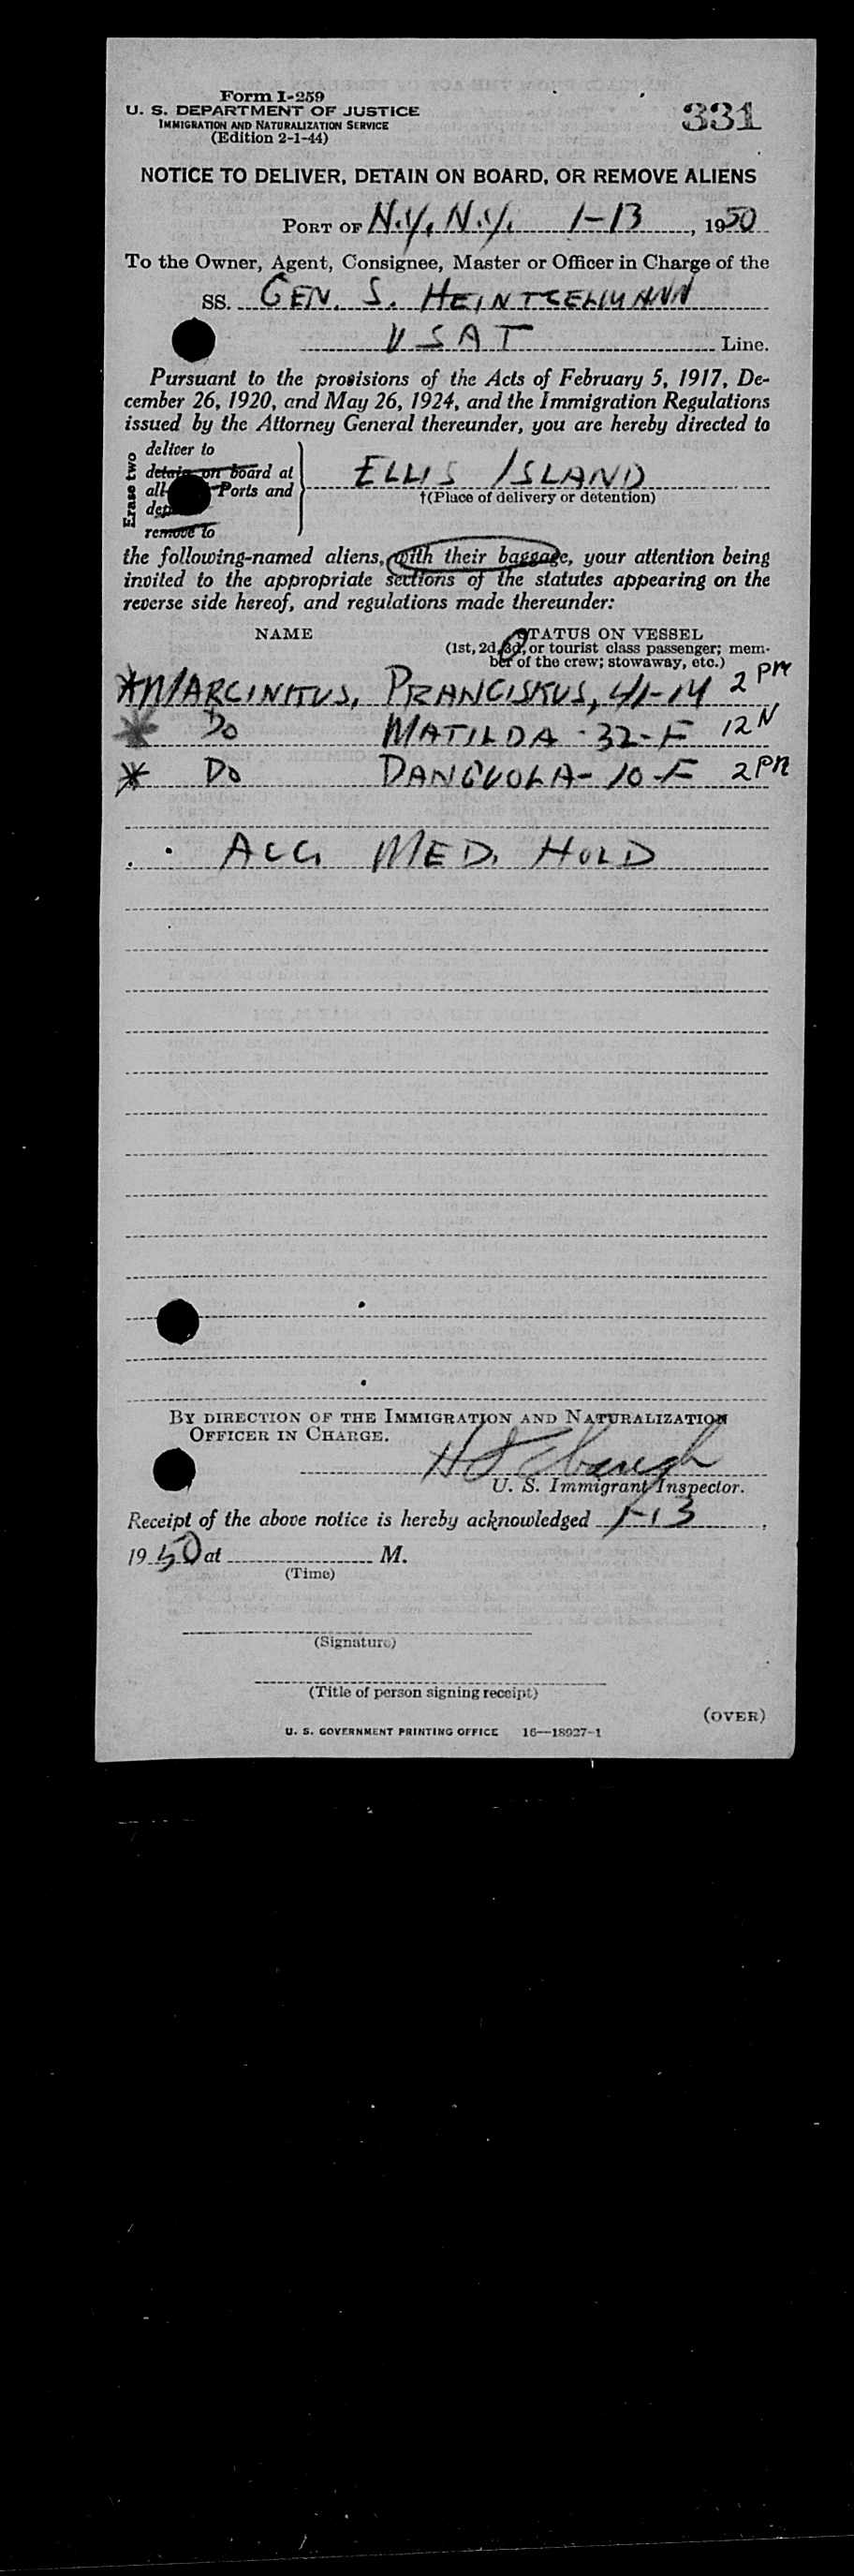 Form I-259
331
U. S. DEPARTMENT OF JUSTICE
IMMIGRATION AND NATURALIZATION SERVICE
(Edition 2-1-44)
NOTICE TO DELIVER, DETAIN ON BOARD, OR REMOVE ALIENS
PORT OF N.Y, N.Y. 1-13, 1950
To the Owner, Agent, Consignee, Master or Officer in Charge of the
SS. GEN. S. HEINTCELMANN
USAT Line.
Pursuant to the provisions of the Acts of February 5, 1917, De-
cember 26, 1920, and May 26, 1924, and the Immigration Regulations
issued by the Attorney General thereunder, you are hereby directed to
Erase two
deliver to
detain on board at
all Ports and
remove to
ELLIS ISLAND
†(Place of delivery or detention)
the following-named aliens, with their baggage, your attention being
invited to the appropriate sections of the statutes appearing on the
reverse side hereof, and regulations made thereunder:
NAME STATUS ON VESSEL
(1st, 2d, 3d, or tourist class passenger; mem-
ber of the crew; stowaway, etc.)
*MARCINKUS, PRANCISKUS, 41-M 2 PM
* Do MATILDA - 32-F 12 N
* Do DANGUOLA - 10-F 2 PM
ACC. MED. HOLD
BY DIRECTION OF THE IMMIGRATION AND NATURALIZATION
OFFICER IN CHARGE.
U. S. Immigrant Inspector.
Receipt of the above notice is hereby acknowledged 1-13,
1950 at M.
(Time)
(Signature)
(Title of person signing receipt)
(OVER)
U. S. GOVERNMENT PRINTING OFFICE 16—18927-1